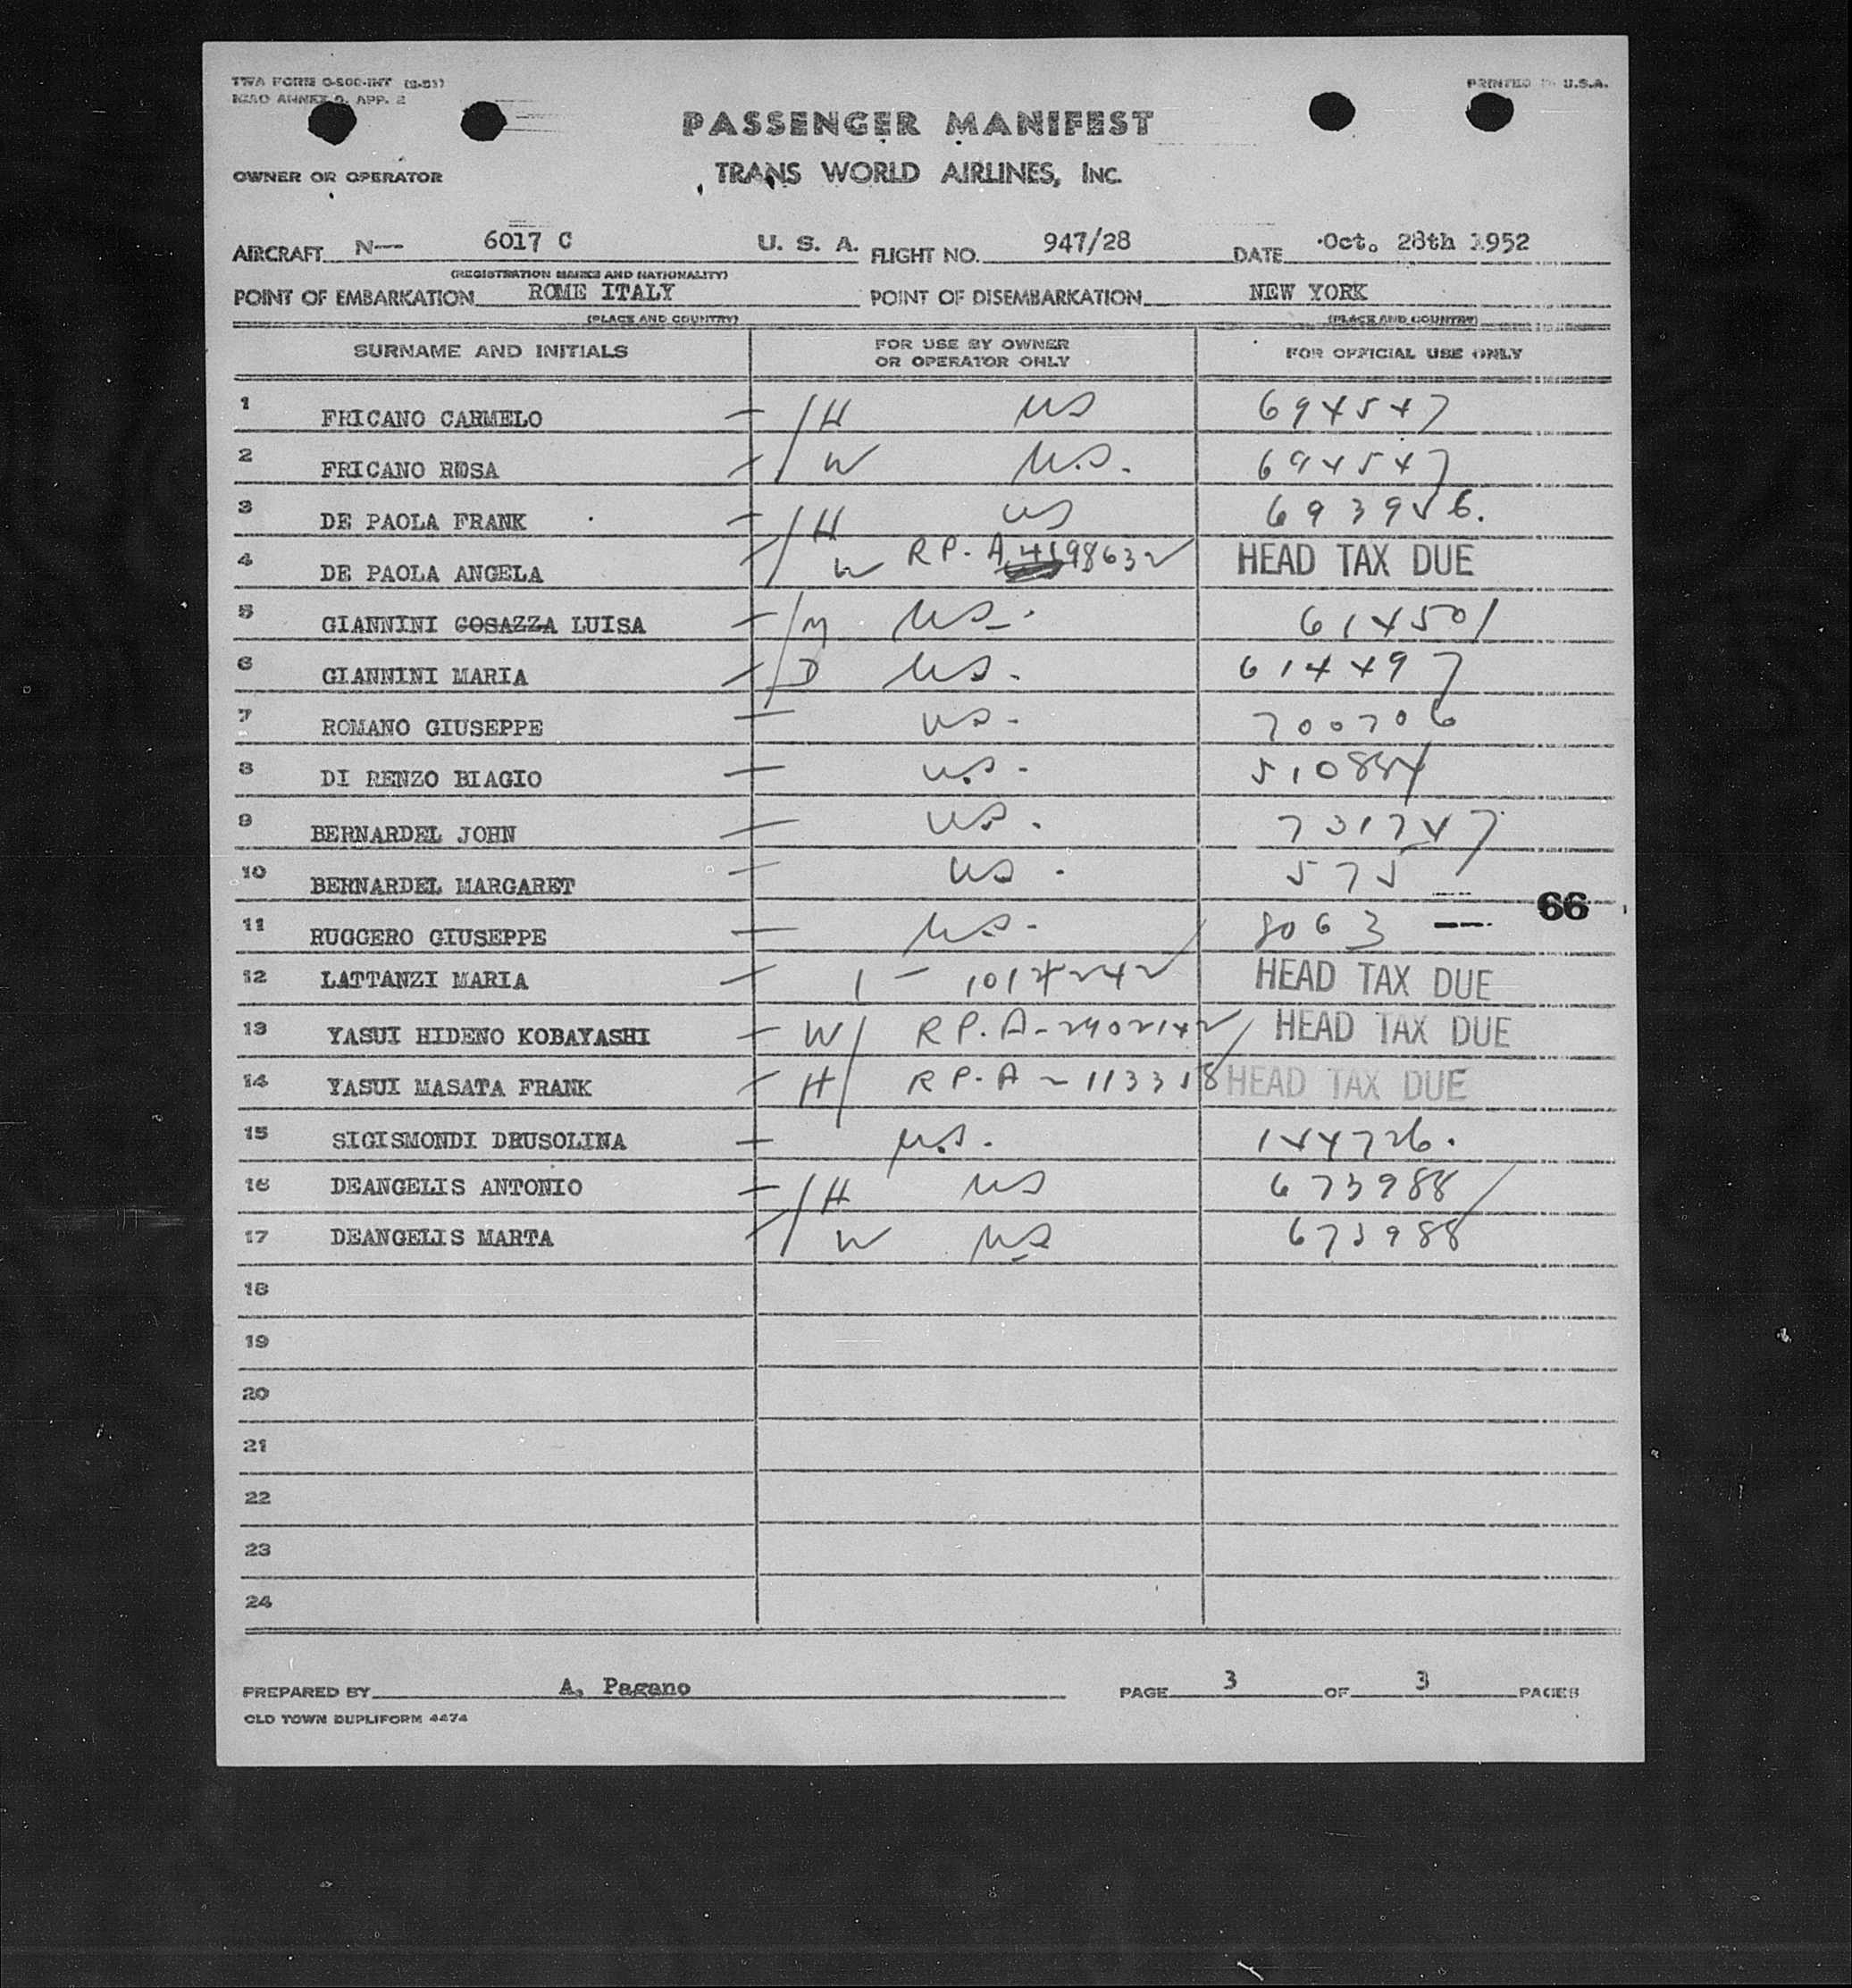 TWA FORM O-500-INT (2-51)
ICAO ANNEX 9, APP. 2
PRINTED IN U.S.A.
PASSENGER MANIFEST
OWNER OR OPERATOR
TRANS WORLD AIRLINES, INC.
AIRCRAFT N-- 6017 C U. S. A. FLIGHT NO. 947/28 DATE Oct. 28th 1952
(REGISTRATION MARKS AND NATIONALITY)
POINT OF EMBARKATION ROME ITALY POINT OF DISEMBARKATION NEW YORK
(PLACE AND COUNTRY) (PLACE AND COUNTRY)
SURNAME AND INITIALS FOR USE BY OWNER OR OPERATOR ONLY FOR OFFICIAL USE ONLY
1 FRICANO CARMELO H US 694547
2 FRICANO ROSA W U.S. 694547
3 DE PAOLA FRANK H US 693956.
4 DE PAOLA ANGELA W R P. A 4198632 HEAD TAX DUE
5 GIANNINI GOSAZZA LUISA M US. 614501
6 GIANNINI MARIA D US. 614497
7 ROMANO GIUSEPPE US. 700706
8 DI RENZO BIAGIO U.S. 510884
9 BERNARDEL JOHN US. 731747
10 BERNARDEL MARGARET US. 575
66
11 RUGGERO GIUSEPPE U.S. 8063
12 LATTANZI MARIA 1 - 1014242 HEAD TAX DUE
13 YASUI HIDENO KOBAYASHI W R P. A-2902142 HEAD TAX DUE
14 YASUI MASATA FRANK H R P. A - 113318 HEAD TAX DUE
15 SIGISMONDI DRUSOLINA U.S. 144726.
16 DEANGELIS ANTONIO H US 673988
17 DEANGELIS MARTA W US 673988
18
19
20
21
22
23
24
PREPARED BY A. Pagano PAGE 3 OF 3 PAGES
OLD TOWN DUPLIFORM 4474